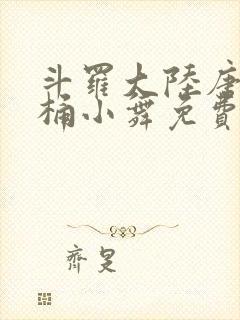 斗羅大陸唐
桶小舞免費
齊旻